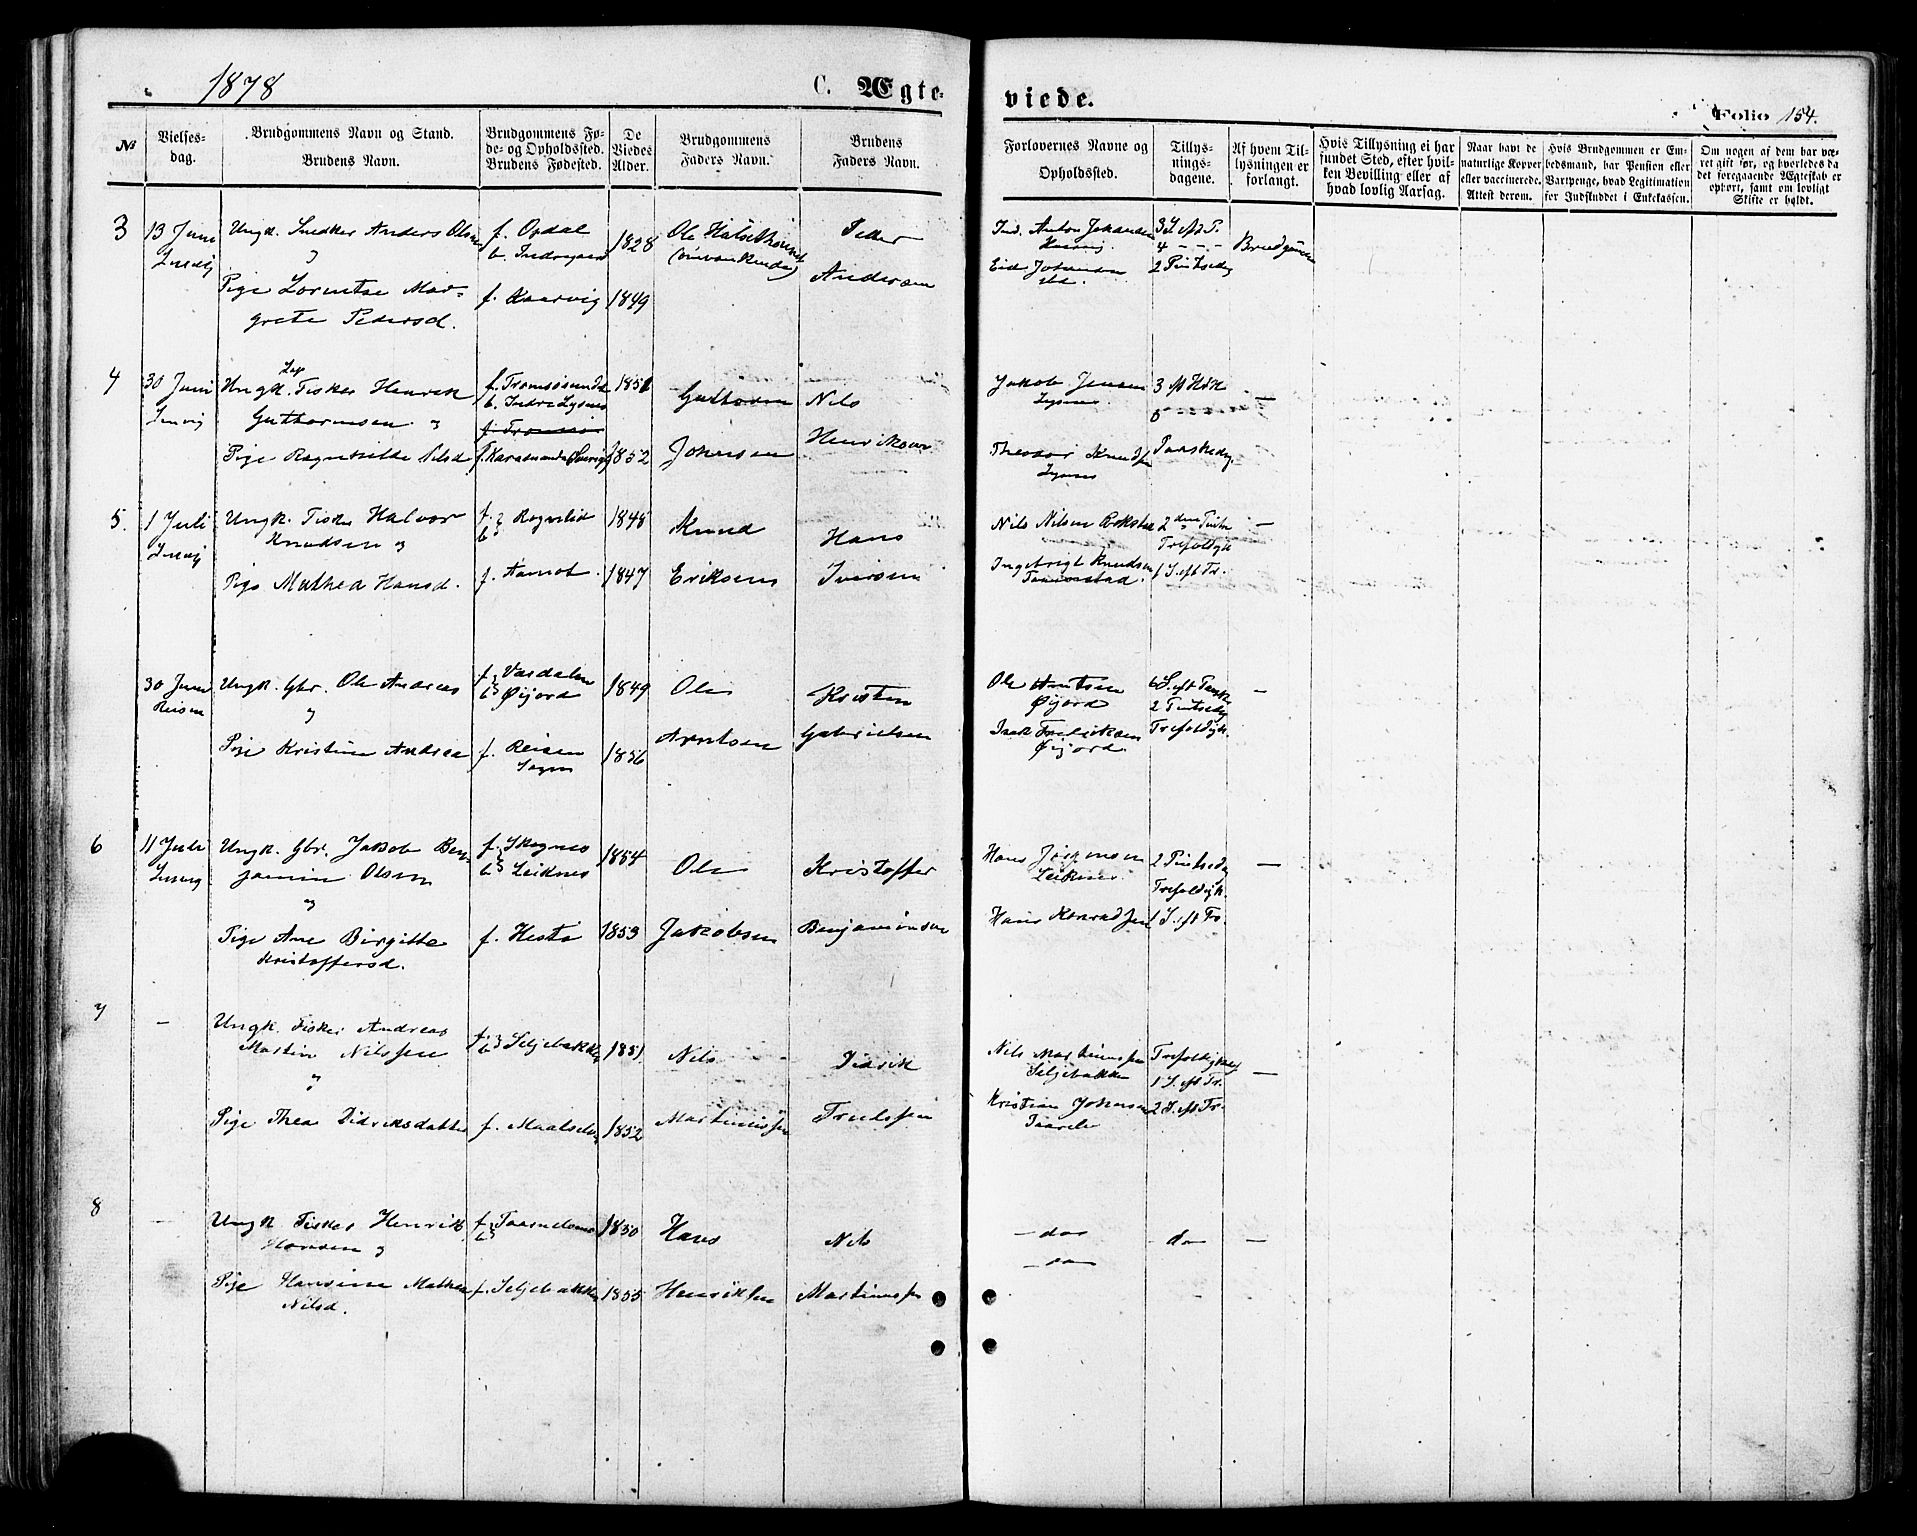 1878
C. Ægte-
viede.
Folio 154.
№
Vielses-
dag.
Brudgommens Navn og Stand.
Brudens Navn.
Brudgommens Fø-
de- og Opholdssted.
Brudens Fødested.
De
Viedes
Alder.
Brudgommens
Faders Navn.
Brudens
Faders Navn.
Forlovernes Navne og
Opholdssted.
Tillys-
nings-
dagene.
Af hvem Til-
lysningen er
forlangt.
Hvis Tillysning ei har
fundet Sted, efter hvil-
ken Bevilling eller af
hvad lovlig Aarsag.
Naar havt de
naturlige Kopper
eller vaccinerede.
Attest derom.
Hvis Brudgommen er Em-
bedsmand, har Pension eller
Vartpenge, hvad Legitimation
for Indskuddet i Enkekassen.
Om nogen af dem har væ-
ret gift før, og hvorledes da
det foregaaende Ægteskab er
ophørt, samt om lovligt
Skifte er holdt.
3
13 Juni
Ungk. Snedker Anders Olsen
og
Pige Lorentse Mar-
grete Pedersd.
f. Opdal
b.
f. Kaarvig
1828
1849
Ole
Peder
Andersen
Anton Johansen
3 S. eft P.
4 - - -
2 Pintsedag
Brudgommen
4
30 Juni
Lap
Ungk. Fisker Henrik
Guttormsen og
Pige Ragnhilde Nilsd
f. Tromsøsundet
b. Indre Lysnes
f. Tromsø
f. Karesuando Sverige
1851
1852
Guttorm
Johnsen
Nils
Henriksen
Jakob Jensen
Lysnes
Theodor Knudsen
Lysnes
5
-
5.
1 Juli
Ungk. Fisker Halvor
Knudsen og
Pige Mathea Hansd.
f. b. Rognlid
f. Aarnot
1848
1847
Knud
Eriksen
Hans
Iversen
Nils Nilsen
Ingebrigt Knudsen
2den Pintse
1 S. eft Tr.
-
30 Juni
Reisen
Ungk. Gbr. Ole Andreas
og
Pige Kristine Andrea
f. b. Værdalen
Øijord
f. Reisen
1849
1856
Ole
Arntsen
Kristen
Gabrielsen
Ole Arntsen
Øijord
Isak Fredriksen
Øijord.
6 S. eft Paask
2 Pintsedag
Trefoldigh.
-
6
11 Juli
Ungk. Gbr. Jakob Ben-
jamin Olsen
og
Pige Ane Birgitte
Kristoffersd.
f. Skognes
b. Leiknes
f. Hestø
1854
1853
Ole
Jakobsen
Kristoffer
Benjaminsen
Hans Jørgensen
Leiknes
Hans Konradsen
2 Pintsedag
Trefoldigh.
1 S. eft Tr.
-
7
-
Ungk. Fisker Andreas
Martin Nilssen
og
Pige Thea Didriksdatter
f. b. Seljebakken
f. Maalselven
1851
1852
Nils
Martinussen
Didrik
Trulssen
Nils Martinussen
Seljebakken
Kristian Johnsen
Trefoldighed
1 S. eft Tr.
2 S. eft Tr.
-
8
-
Ungk. Fisker Henrik
Hansen og
Pige Hansine Mathea
Nilsd.
f. b.
f. Seljebakken
1850
1855
Hans
Henriksen
Nils
Martinussen
do
do
do
-